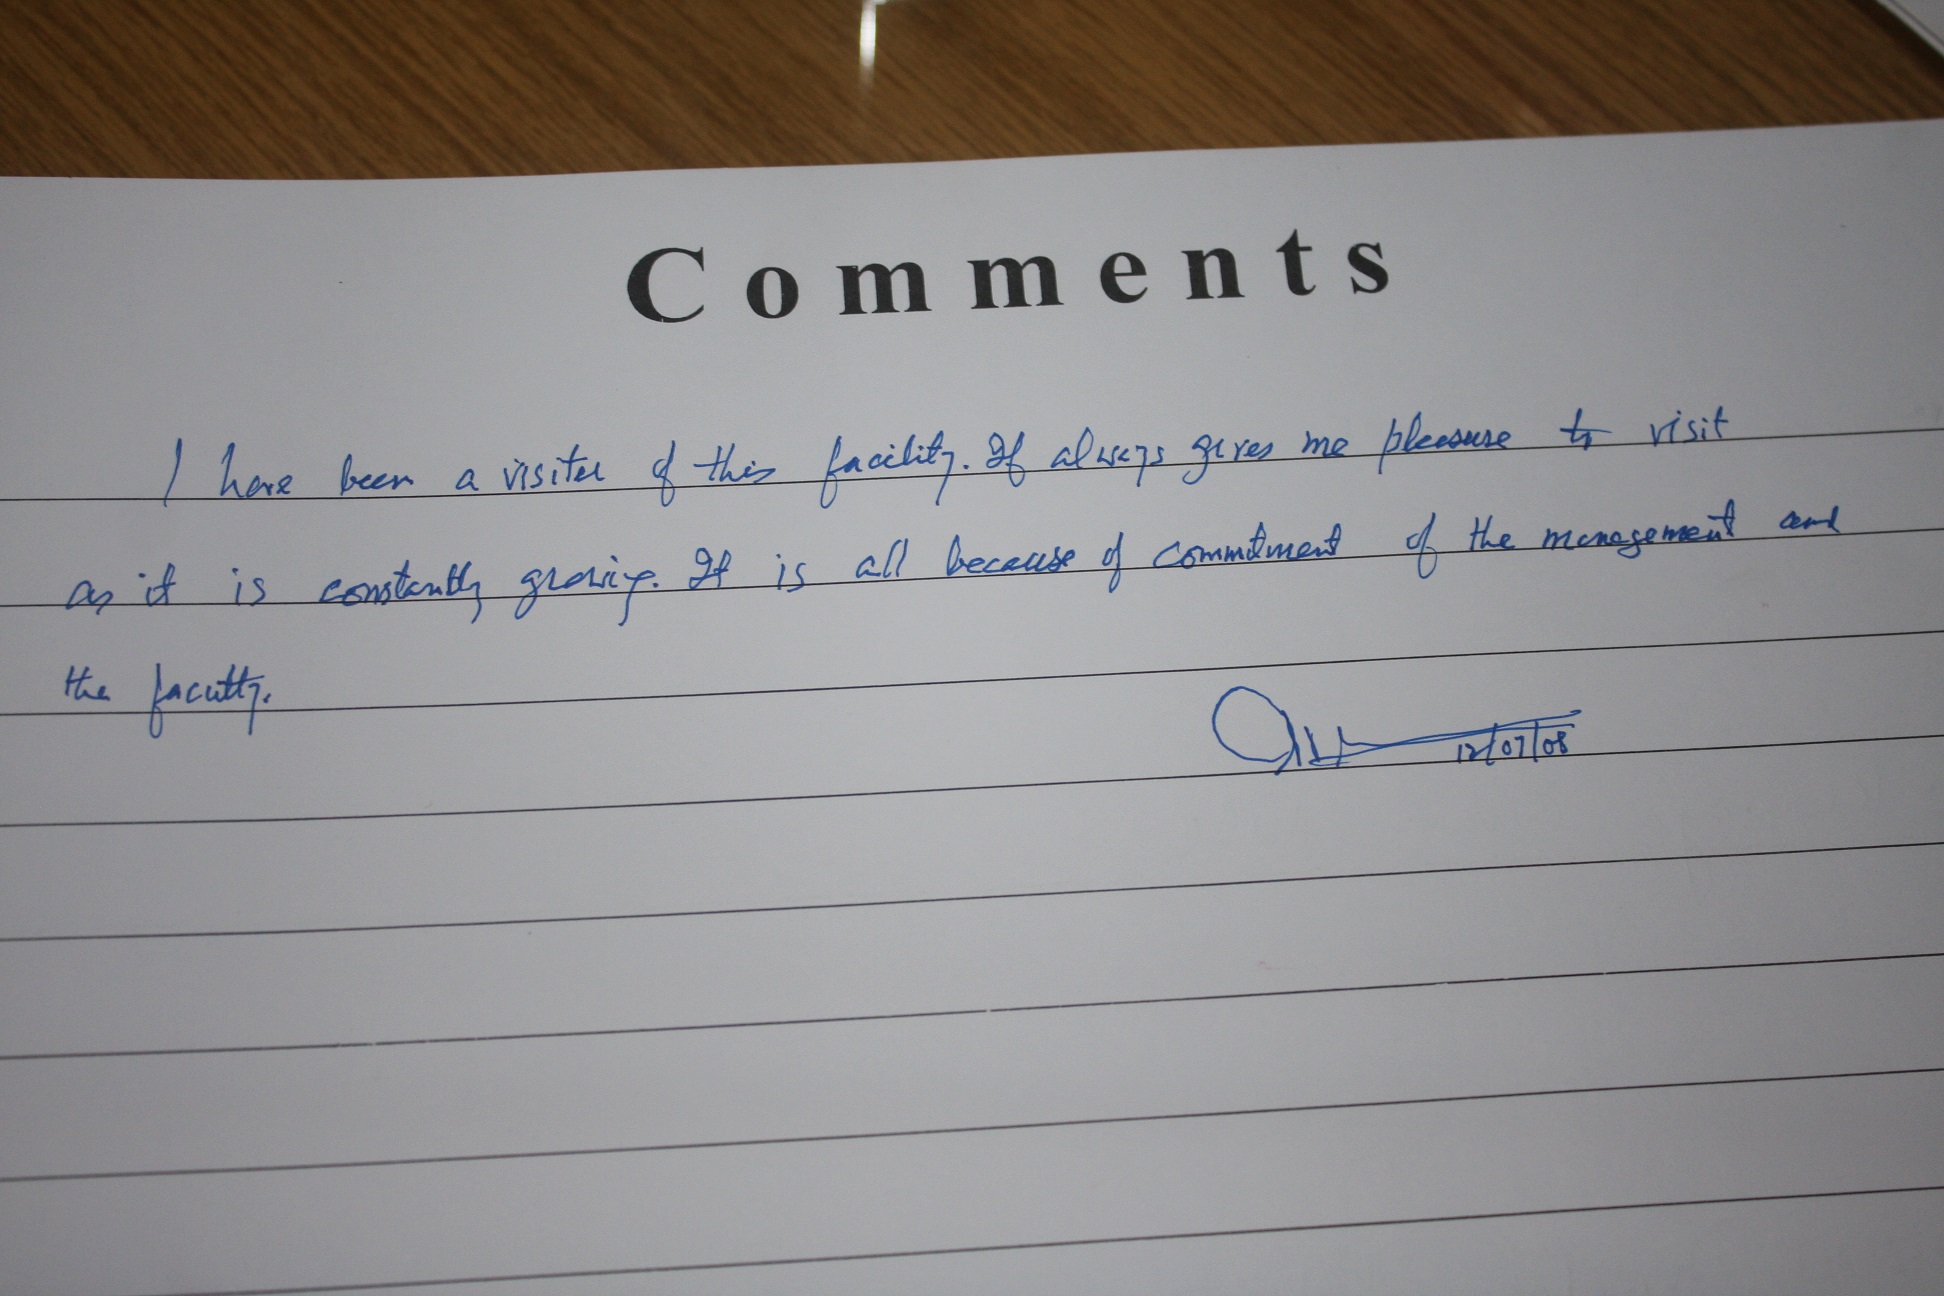 Comments
I have been a visiter of this facility. It always gives me pleasure to visit
as it is constantly growing. It is all because of commitment of the management and
the faculty.
12/07/08